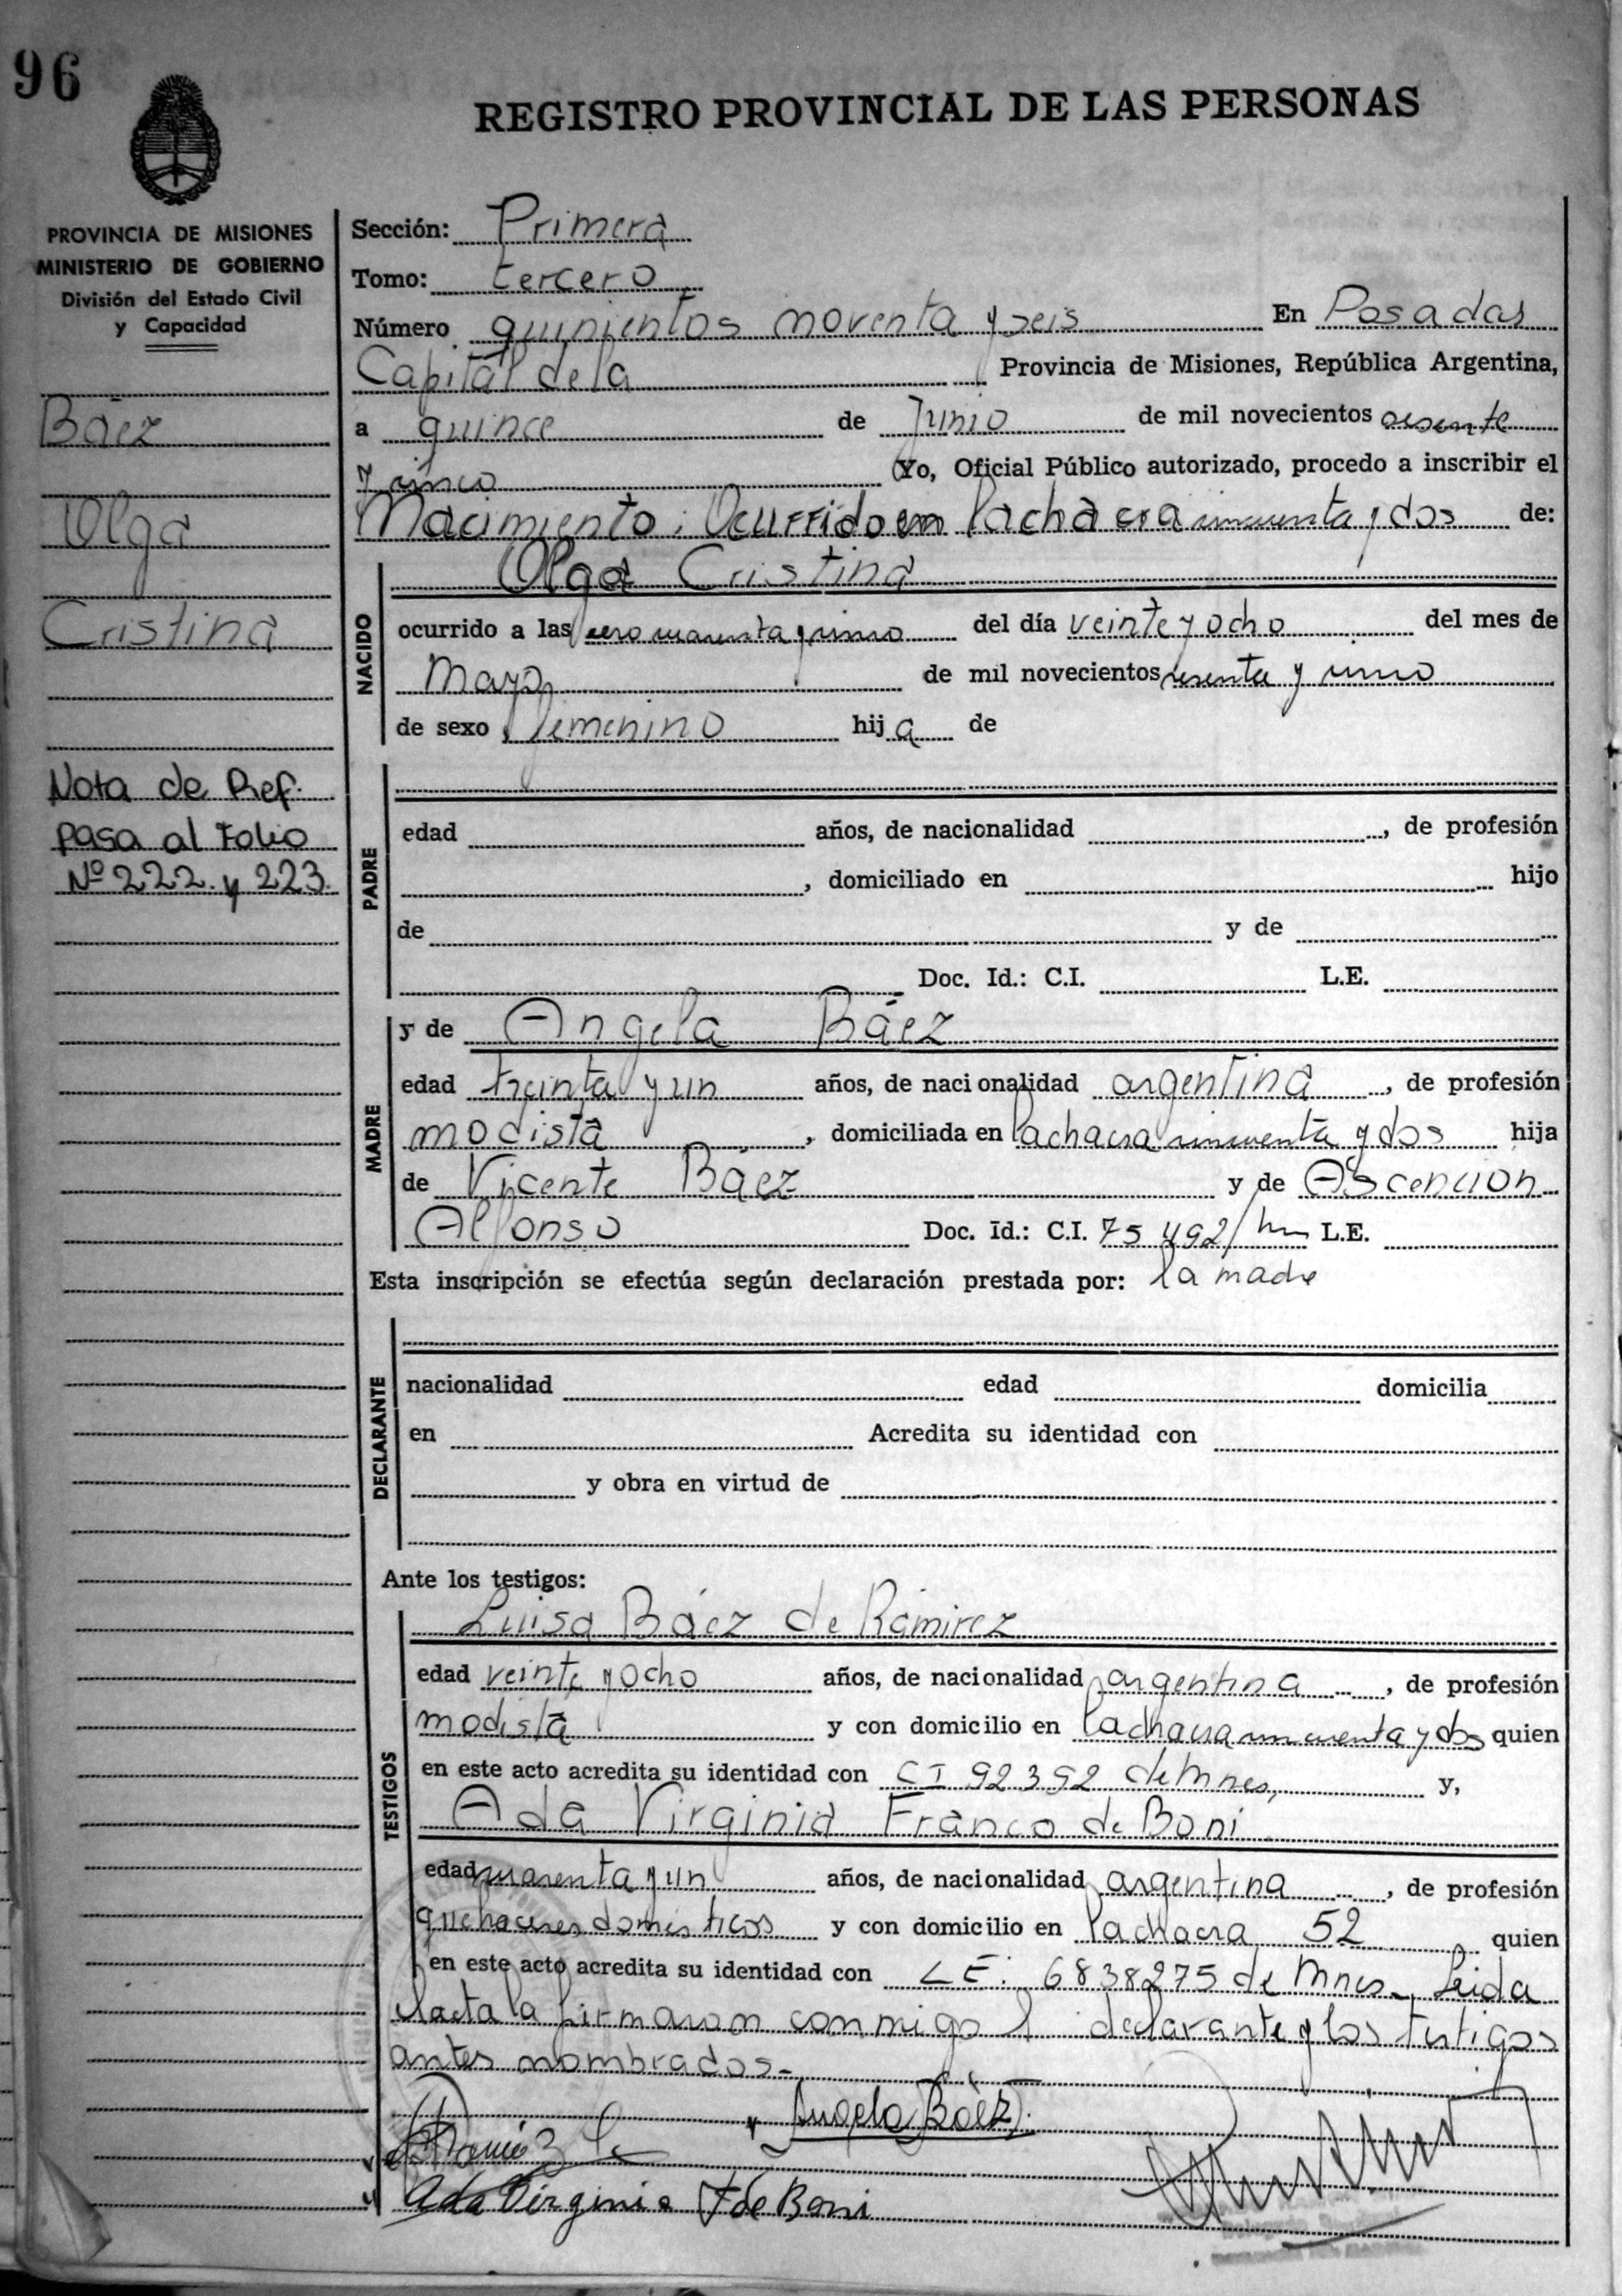 96
REGISTRO PROVINCIAL DE LAS PERSONAS
PROVINCIA DE MISIONES
MINISTERIO DE GOBIERNO
División del Estado Civil
y Capacidad
Báez
Olga
Cristina
Nota de Ref.
pasa al Folio
Nº 222. y 223.
Sección: Primera
Tomo: tercero
Número quinientos noventa y seis En Posadas
Capital de la Provincia de Misiones, República Argentina,
a quince de Junio de mil novecientos sesenta
y cinco Yo, Oficial Público autorizado, procedo a inscribir el
Nacimiento: Ocurrido en la chacra cincuenta y dos de:
Olga Cristina
NACIDO
ocurrido a las cero cuarenta y cinco del día veinte y ocho del mes de
Mayo de mil novecientos sesenta y cinco
de sexo femenino hij a de
PADRE
edad años, de nacionalidad , de profesión
, domiciliado en hijo
de y de
Doc. Id.: C.I. L.E.
MADRE
y de Angela Báez
edad treinta y un años, de nacionalidad argentina , de profesión
modista , domiciliada en la chacra cincuenta y dos hija
de Vicente Báez y de Ascencion
Alfonso Doc. Id.: C.I. 75492/ L.E.
Esta inscripción se efectúa según declaración prestada por: la madre
DECLARANTE
nacionalidad edad domicilia
en Acredita su identidad con
y obra en virtud de
Ante los testigos:
TESTIGOS
Luisa Báez de Ramirez
edad veinte y ocho años, de nacionalidad argentina , de profesión
modista y con domicilio en la chacra cincuenta y dos quien
en este acto acredita su identidad con CI 92392 de Mnes, y,
Ada Virginia Franco de Boni
edad cuarenta y un años, de nacionalidad argentina , de profesión
quehaceres domésticos y con domicilio en la chacra 52 quien
en este acto acredita su identidad con LE. 6838275 de Mnes. Leida
el acta la firmaron conmigo l declarante y los testigos
antes nombrados.-
Angela Báez
Ada Virginia F de Boni